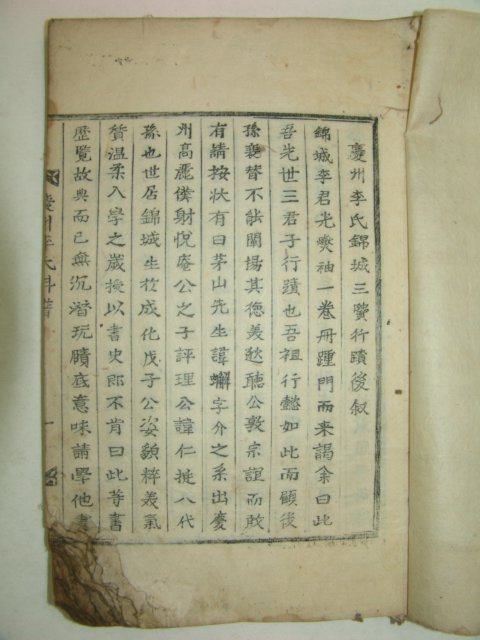 慶州李氏錦城三賢行蹟後叙
錦城李君光奭袖一卷冊踵門而来謁余曰此
吾先世三君子行蹟也吾祖行懿如此而顧後
孫襲替不能闡揚其德美愁聽公敦宗誼而賤
有請按狀有曰茅山先生諱蠏字介之系出慶
州高麗僕射悅庵公之子評理公諱仁挺八代
孫也世居錦城生於成化戊子公姿䫉粹美氣
質溫柔入學之歲授以書史郎不肯曰此等書
歷覽故典而已無沉潛玩賾底意味請學他書
慶州李氏科譜
一